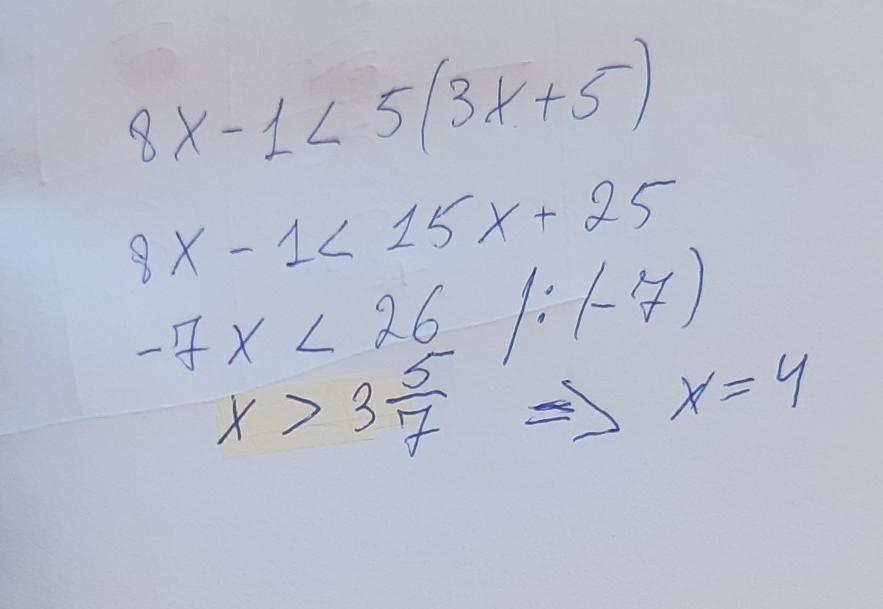 8x - 1 < 5(3x + 5)
8x - 1 < 15x + 25
-7x < 26 /:(-7)
x > 3 5/7 => x = 4